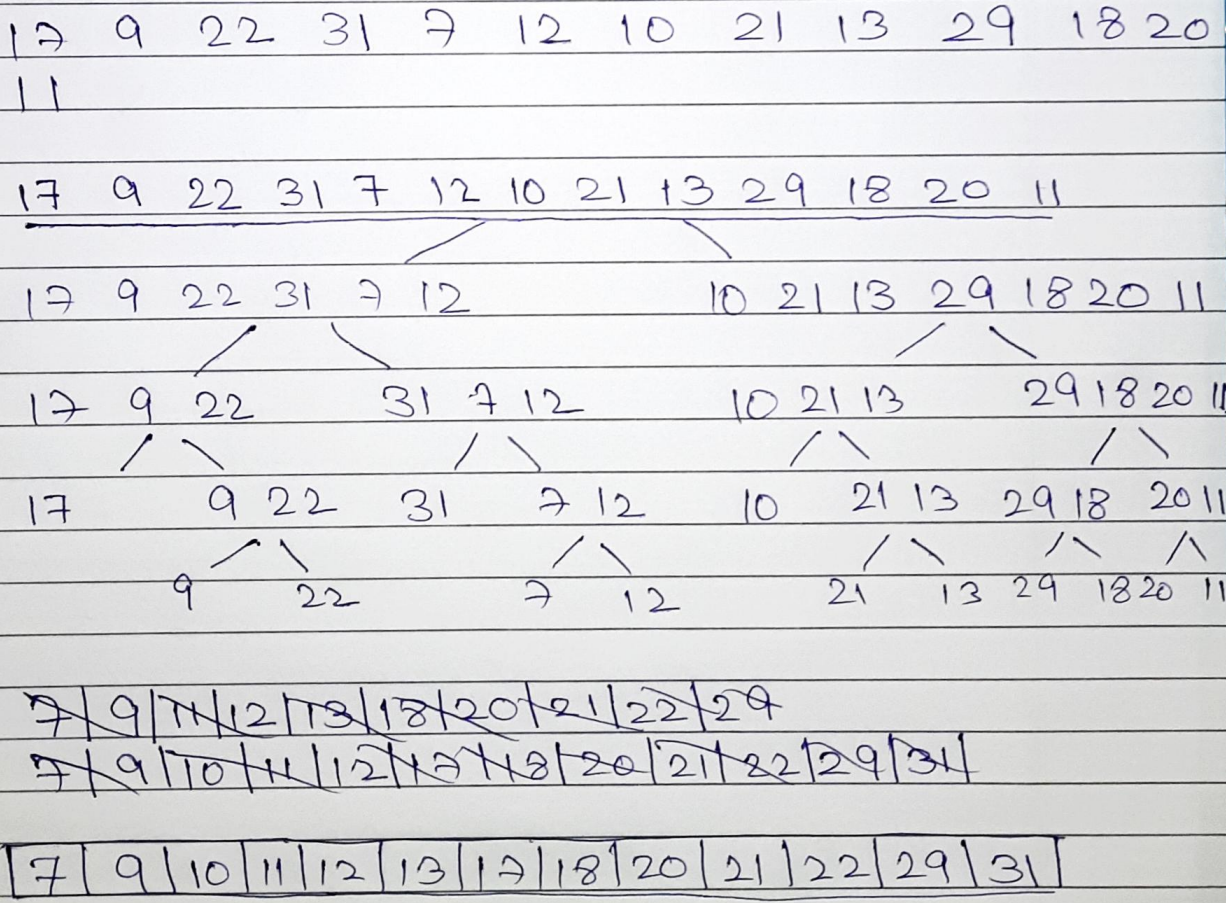 17 9 22 31 7 12 10 21 13 29 18 20
11
17 9 22 31 7 12 10 21 13 29 18 20 11
17 9 22 31 7 12 10 21 13 29 18 20 11
17 9 22 31 7 12 10 21 13 29 18 20 11
17 9 22 31 7 12 10 21 13 29 18 20 11
9 22 7 12 21 13 29 18 20 11
7 9 11 12 13 18 20 21 22 29
7 9 10 11 12 17 18 20 21 22 29 31
7 9 10 11 12 13 17 18 20 21 22 29 31